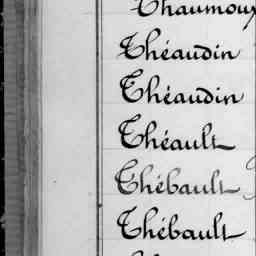 Thaumoux
Théaudin
Théaudin
Théault
Thébault
Thébault